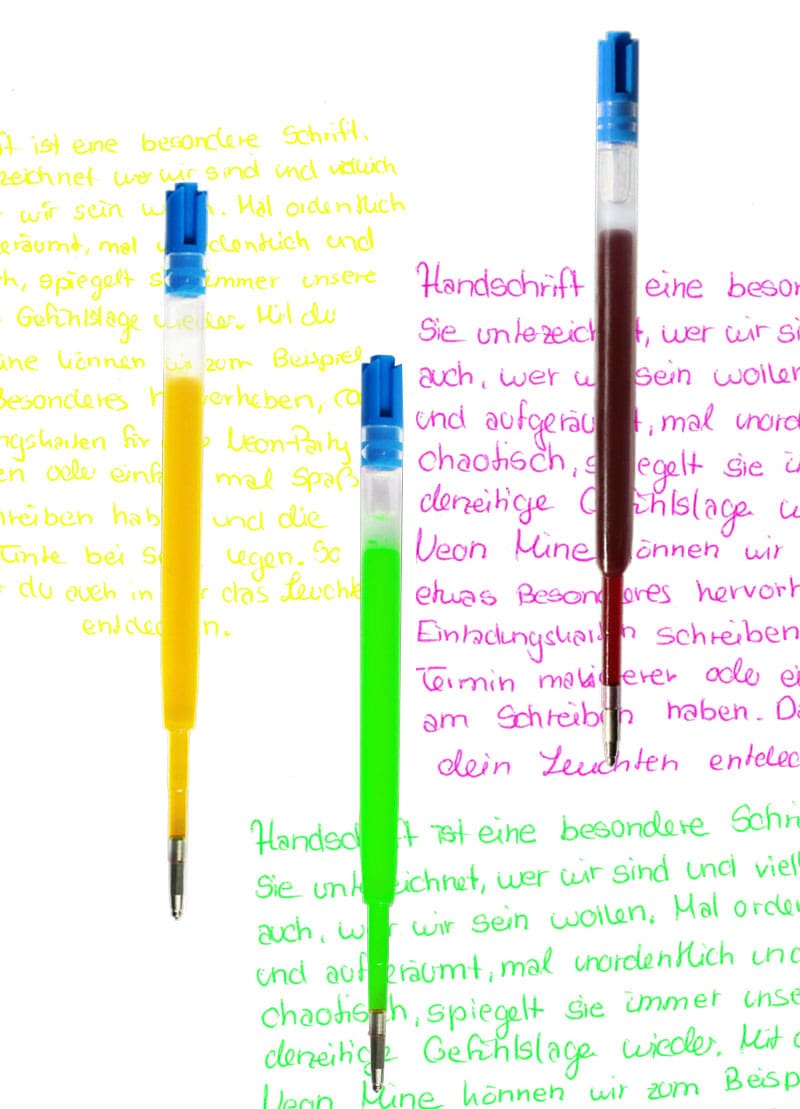 ft ist eine besondere Schrift.
zeichnet wer wir sind und vielleich
wir sein w n. Mal ordentlich
eräumt, mal u dentlich und
h, spiegelt s immer unsere
Gefühlslage wieder. Mit du
ine können wir zum Beispiel
Besonderes h verheben, co
ngskarten für Neon-Party
en ode einf mal Spaß
hreiben hab und die
Tinte bei S egen. So
du auch in das Leucht
entdec n.
Handschrift eine beson
Sie untezeich t, wer wir si
auch, wer w sein wollen
und aufgeräu t, mal unord
chaotisch, s egelt sie i
derzeitige G ühlslage w
Neon Mine önnen wir
etwas Besonderes hervorh
Einladungskarten schreiben
Termin makierer ode ei
am Schreiben haben. Da
dein Leuchten entdec
Handsch ft ist eine besondere Schri
Sie unte eichnet, wer wir sind und viell
auch, w wir sein wollen. Mal orden
und aufgeräumt, mal unordentlich und
chaotisch, spiegelt sie immer unse
derzeitige Gefühlslage wieder. Mit d
Neon Mine können wir zum Beisp